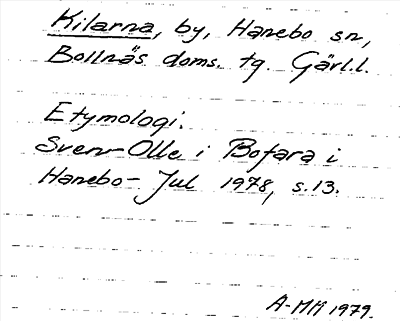 Kilarna, by, Hanebo sn,
Bollnäs doms. tg. Gärl.l.
Etymologi.
Sven-Olle i Bofara i
Hanebo-Jul 1978, s.13.
A-MM 1979.